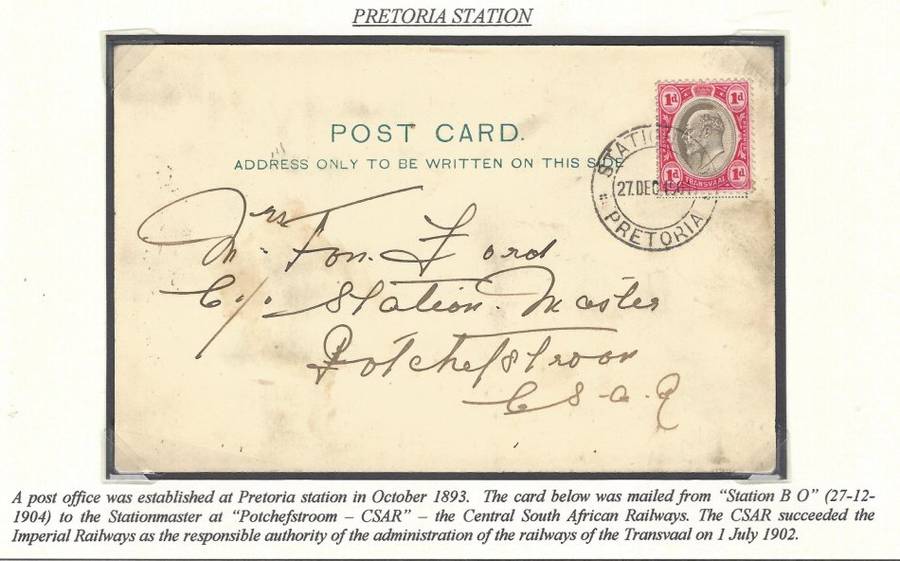 PRETORIA STATION
POST CARD.
ADDRESS ONLY TO BE WRITTEN ON THIS SIDE
1d 1d
1d TRANSVAAL 1d
STATIO
27.DEC
PRETORIA
Mrs Ford
C/o Station Master
Potchefstroom
C S. a. R
A post office was established at Pretoria station in October 1893. The card below was mailed from “Station B O” (27-12-
1904) to the Stationmaster at “Potchefstroom – CSAR” – the Central South African Railways. The CSAR succeeded the
Imperial Railways as the responsible authority of the administration of the railways of the Transvaal on 1 July 1902.